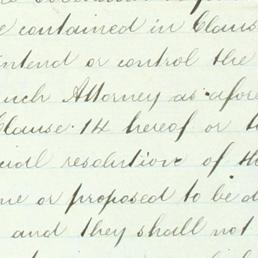 contained in Claus
ntend or control the
uch Attorney as afore
Clause 14 hereof or to
cial resolution of th
ne or proposed to be d
and they shall not